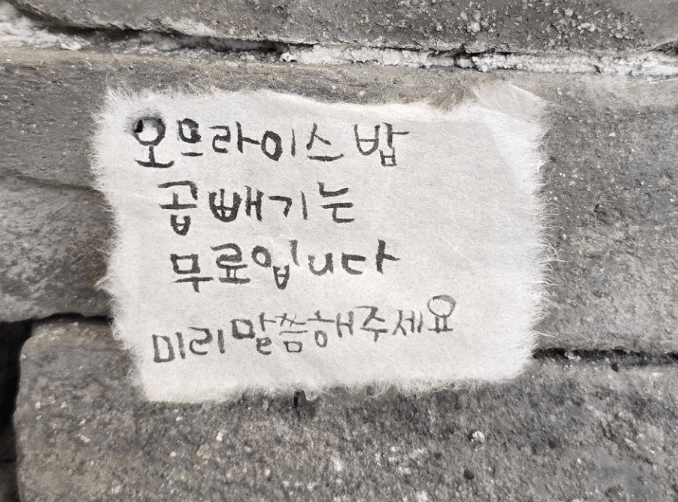 오므라이스 밥
곱빼기는
무료입니다
미리말씀해주세요